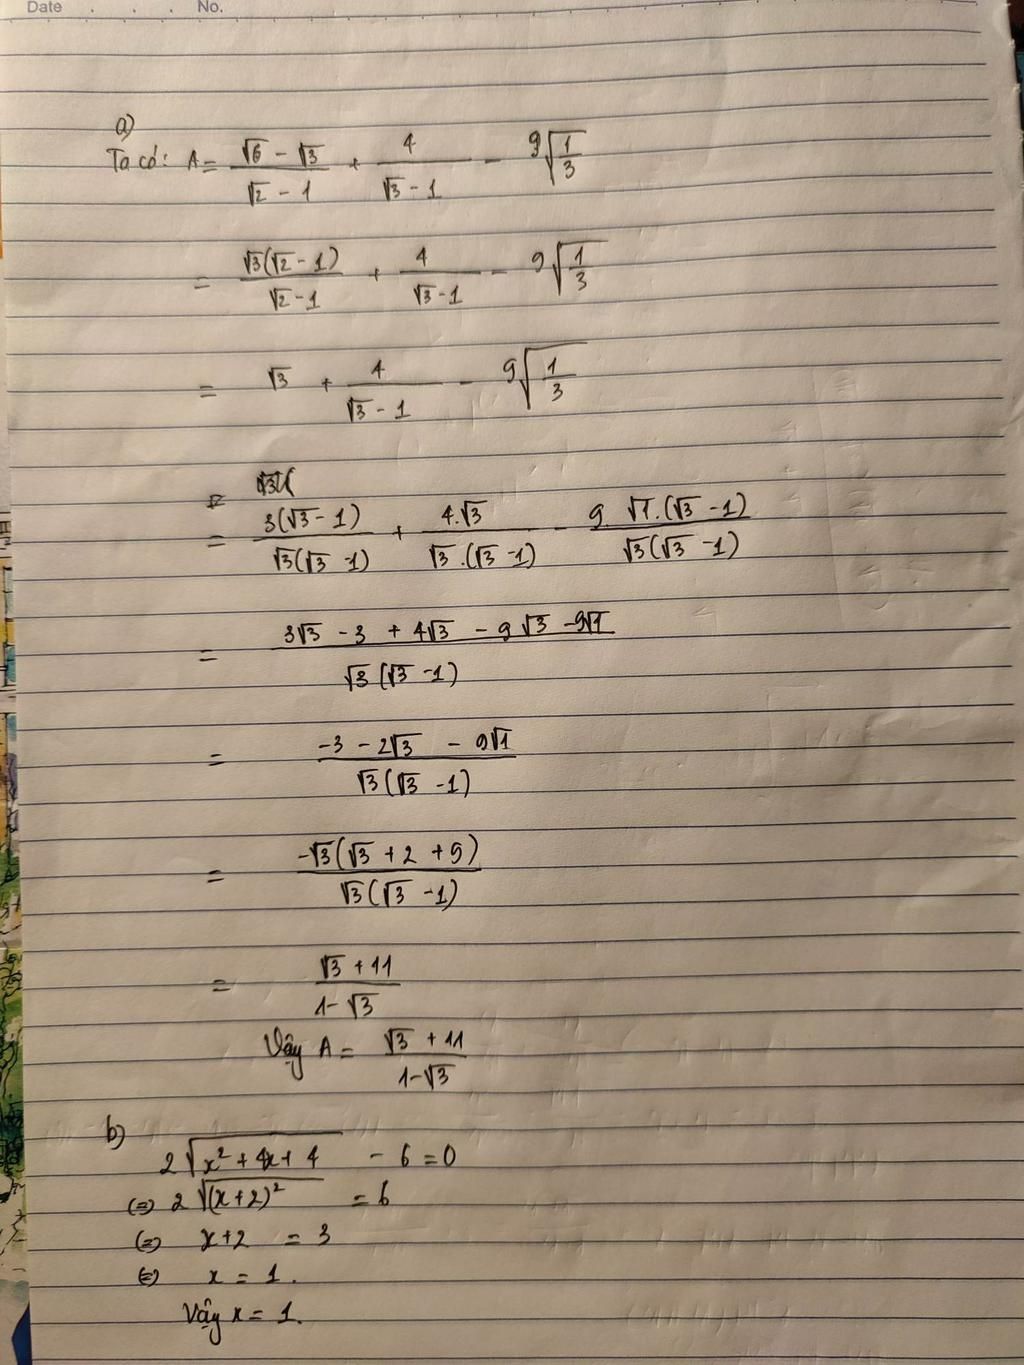 Date . . . No.
a)
Ta có: A = (√6 - √3)/(√2 - 1) + 4/(√3 - 1) - 9√(1/3)
= √3(√2 - 1)/(√2 - 1) + 4/(√3 - 1) - 9√(1/3)
= √3 + 4/(√3 - 1) - 9√(1/3)
= 3(√3 - 1)/(√3(√3 - 1)) + 4.√3/(√3.(√3 - 1)) - 9 √1.(√3 - 1)/(√3(√3 - 1))
= (3√3 - 3 + 4√3 - 9√3 - 9√1)/(√3(√3 - 1))
= (-3 - 2√3 - 9√1)/(√3(√3 - 1))
= -√3(√3 + 2 + 9)/(√3(√3 - 1))
= (√3 + 11)/(1 - √3)
Vậy A = (√3 + 11)/(1 - √3)
b)
2√(x² + 4x + 4) - 6 = 0
(=) 2√((x+2)²) = 6
(=) x+2 = 3
(=) x = 1.
Vậy x = 1.